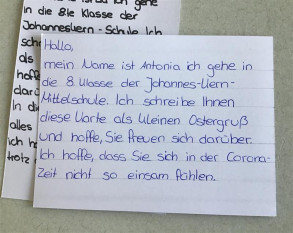 in die 8.te Klasse der
Johannesliern-Schule. Ich
Hallo,
mein Name ist Antonia ich gehe in
die 8. Klasse der Johannes-Liern-
Mittelschule. Ich schreibe Ihnen
diese Karte als kleinen Ostergruß
und hoffe, Sie freuen sich darüber.
Ich hoffe, dass Sie sich in der Corona-
Zeit nicht so einsam fühlen.
als
hoffe
darü
in di
alles
ich h
trotz